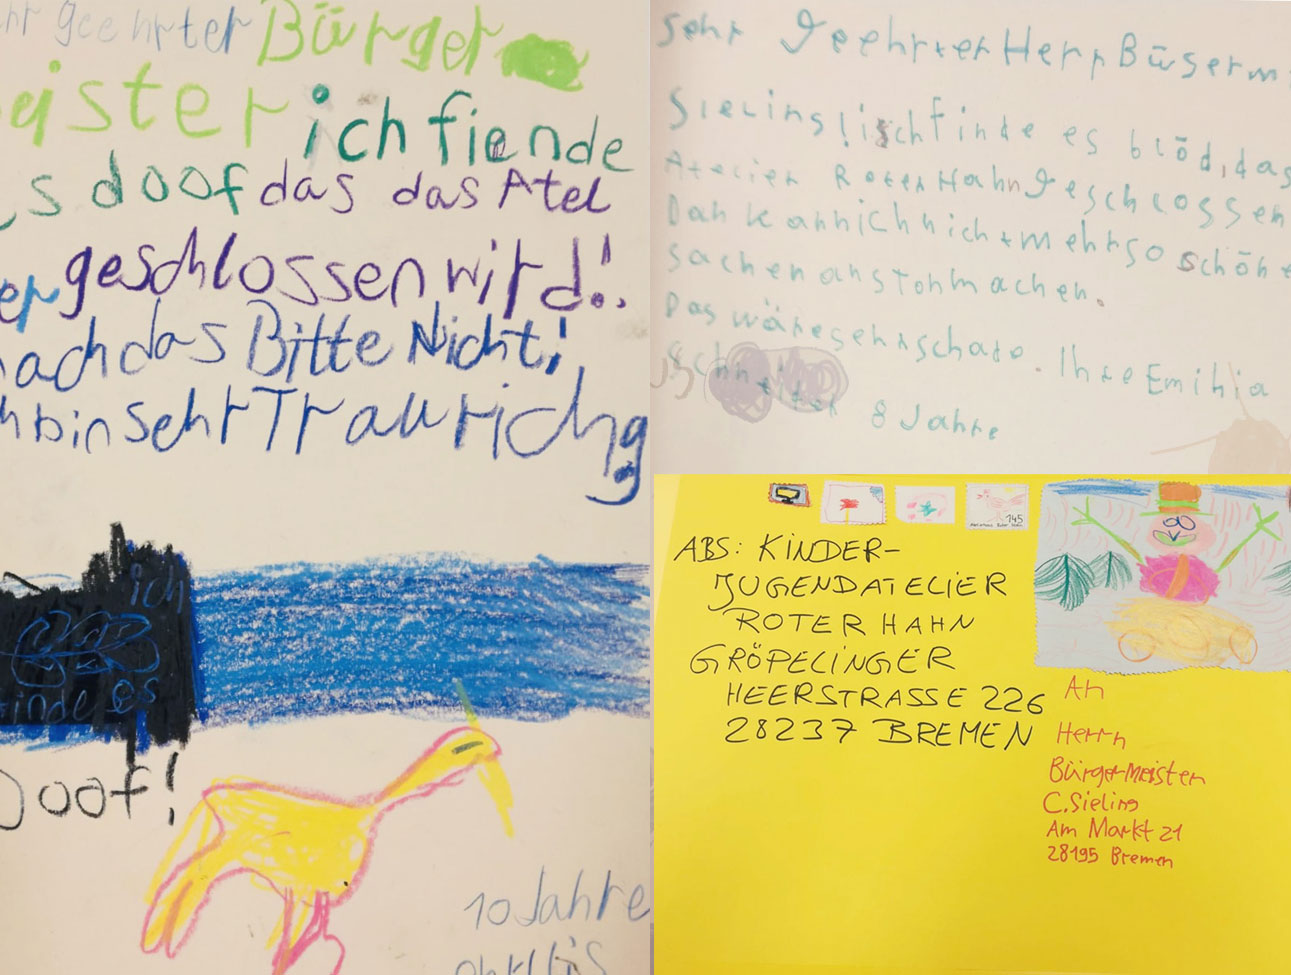 geehrter Bürger
eister ich fiende
es doof das das Atel
er geschlossen wird!
mach das Bitte Nicht!
ch bin sehr Traurichg
ich
finde es
Doof!
10 Jahre
Sehr geehrter Herr Bügerm
Sieling! isch finde es blöd, das
Atelier Roter Hahn geschlossen
Dan kann ich nicht mehr so schöne
sachen aus Tohn machen.
Das wäre sehr schade. Ihre Emilia
8 Jahre
145
ABS: KINDER-
JUGENDATELIER
ROTER HAHN
GRÖPELINGER
HEERSTRASSE 226
28237 BREMEN
An
Herrn
Bürgermeister
C. Sieling
Am Markt 21
28195 Bremen